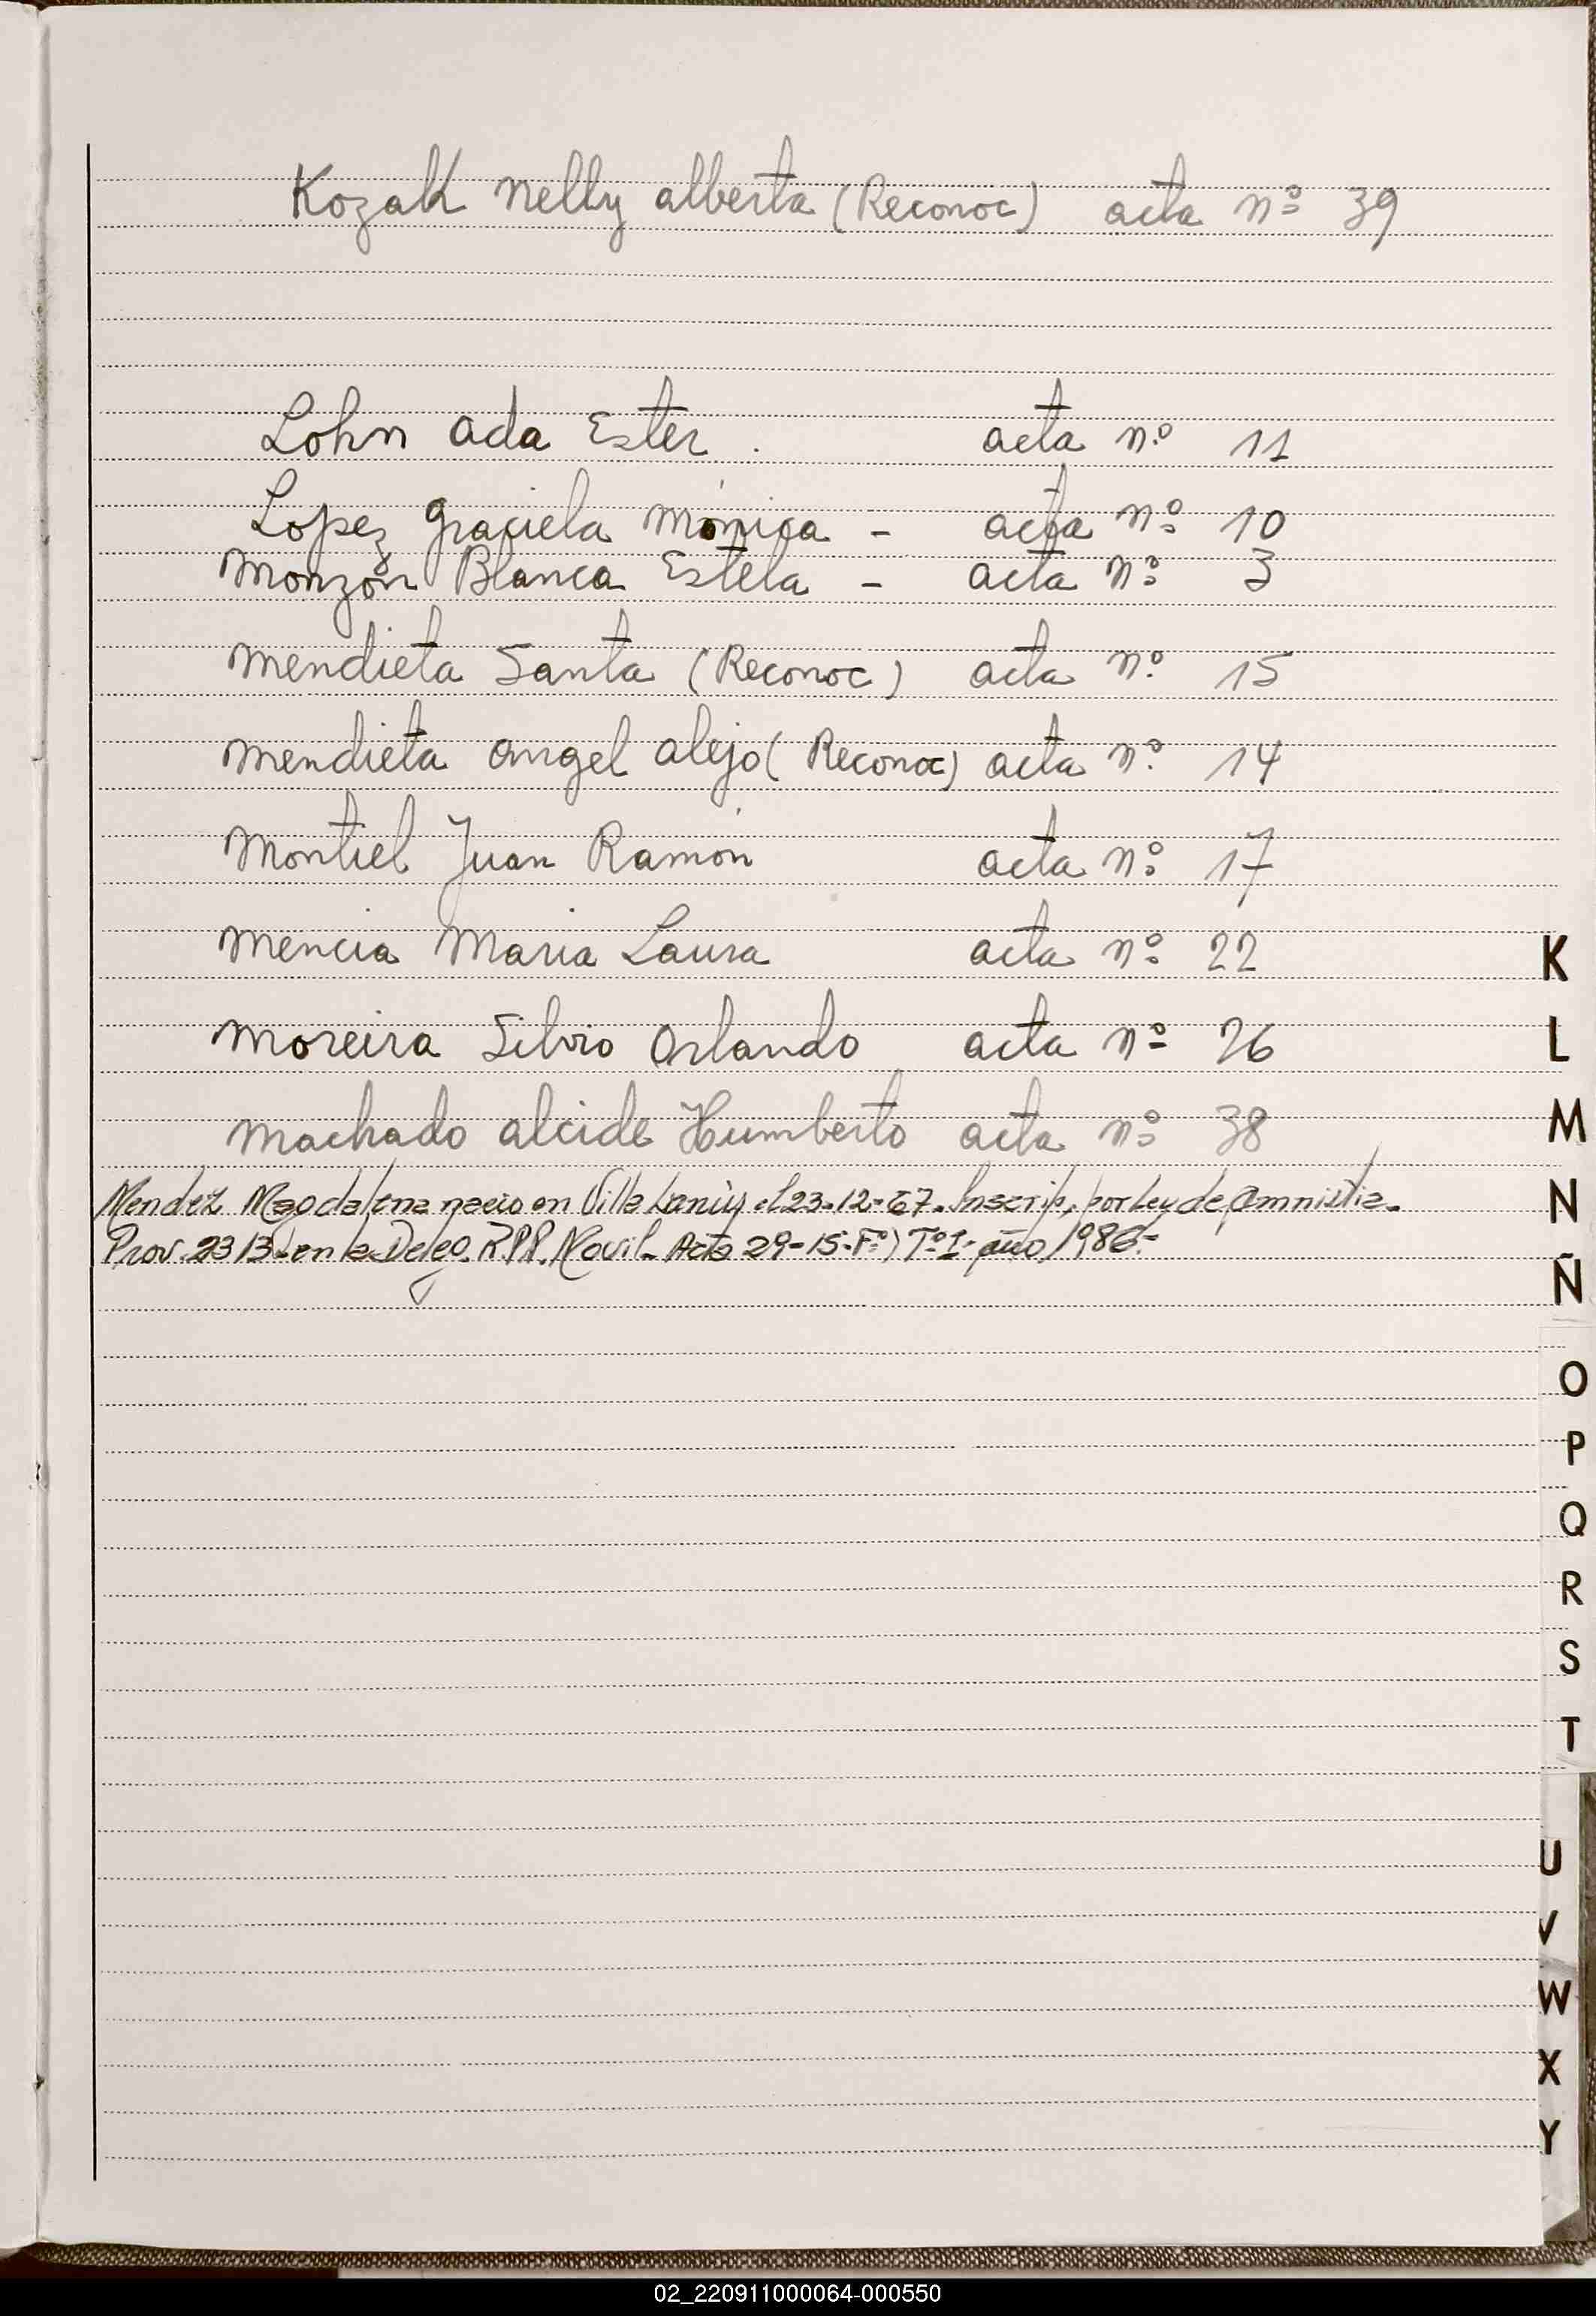 Kozak Nelly alberta (Reconoc) acta nº 39
Lohn ada Ester. acta nº 11
Lopez graciela mónica - acta nº 10
Monzón Blanca Estela - acta nº 3
Mendieta Santa (Reconoc) acta nº 15
Mendieta angel alejo (Reconoc) acta nº 14
Montiel Juan Ramón acta nº 17
Mencia Maria Laura acta nº 22
Moreira Silvio Orlando acta nº 26
Machado alcide Humberto acta nº 38
Mendez Magdalena nacio en Villa Lanús el 23-12-67. Inscrip, por Ley de Amnistia.
Prov. 2313- en la Deleg. R.P.P. Movil- Acta 29-15-Fº) Tº1- año 1986-
K
L
M
N
Ñ
O
P
Q
R
S
T
U
V
W
X
Y
02_220911000064-000550